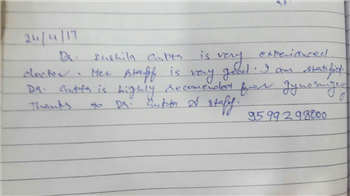 24/4/17
Dr. Sushila Gupta is very experienced
doctor. Her staff is very good. I am
Dr. Gupta is highly recomended for
Thanks to Dr. Gupta & staff.
9599298000